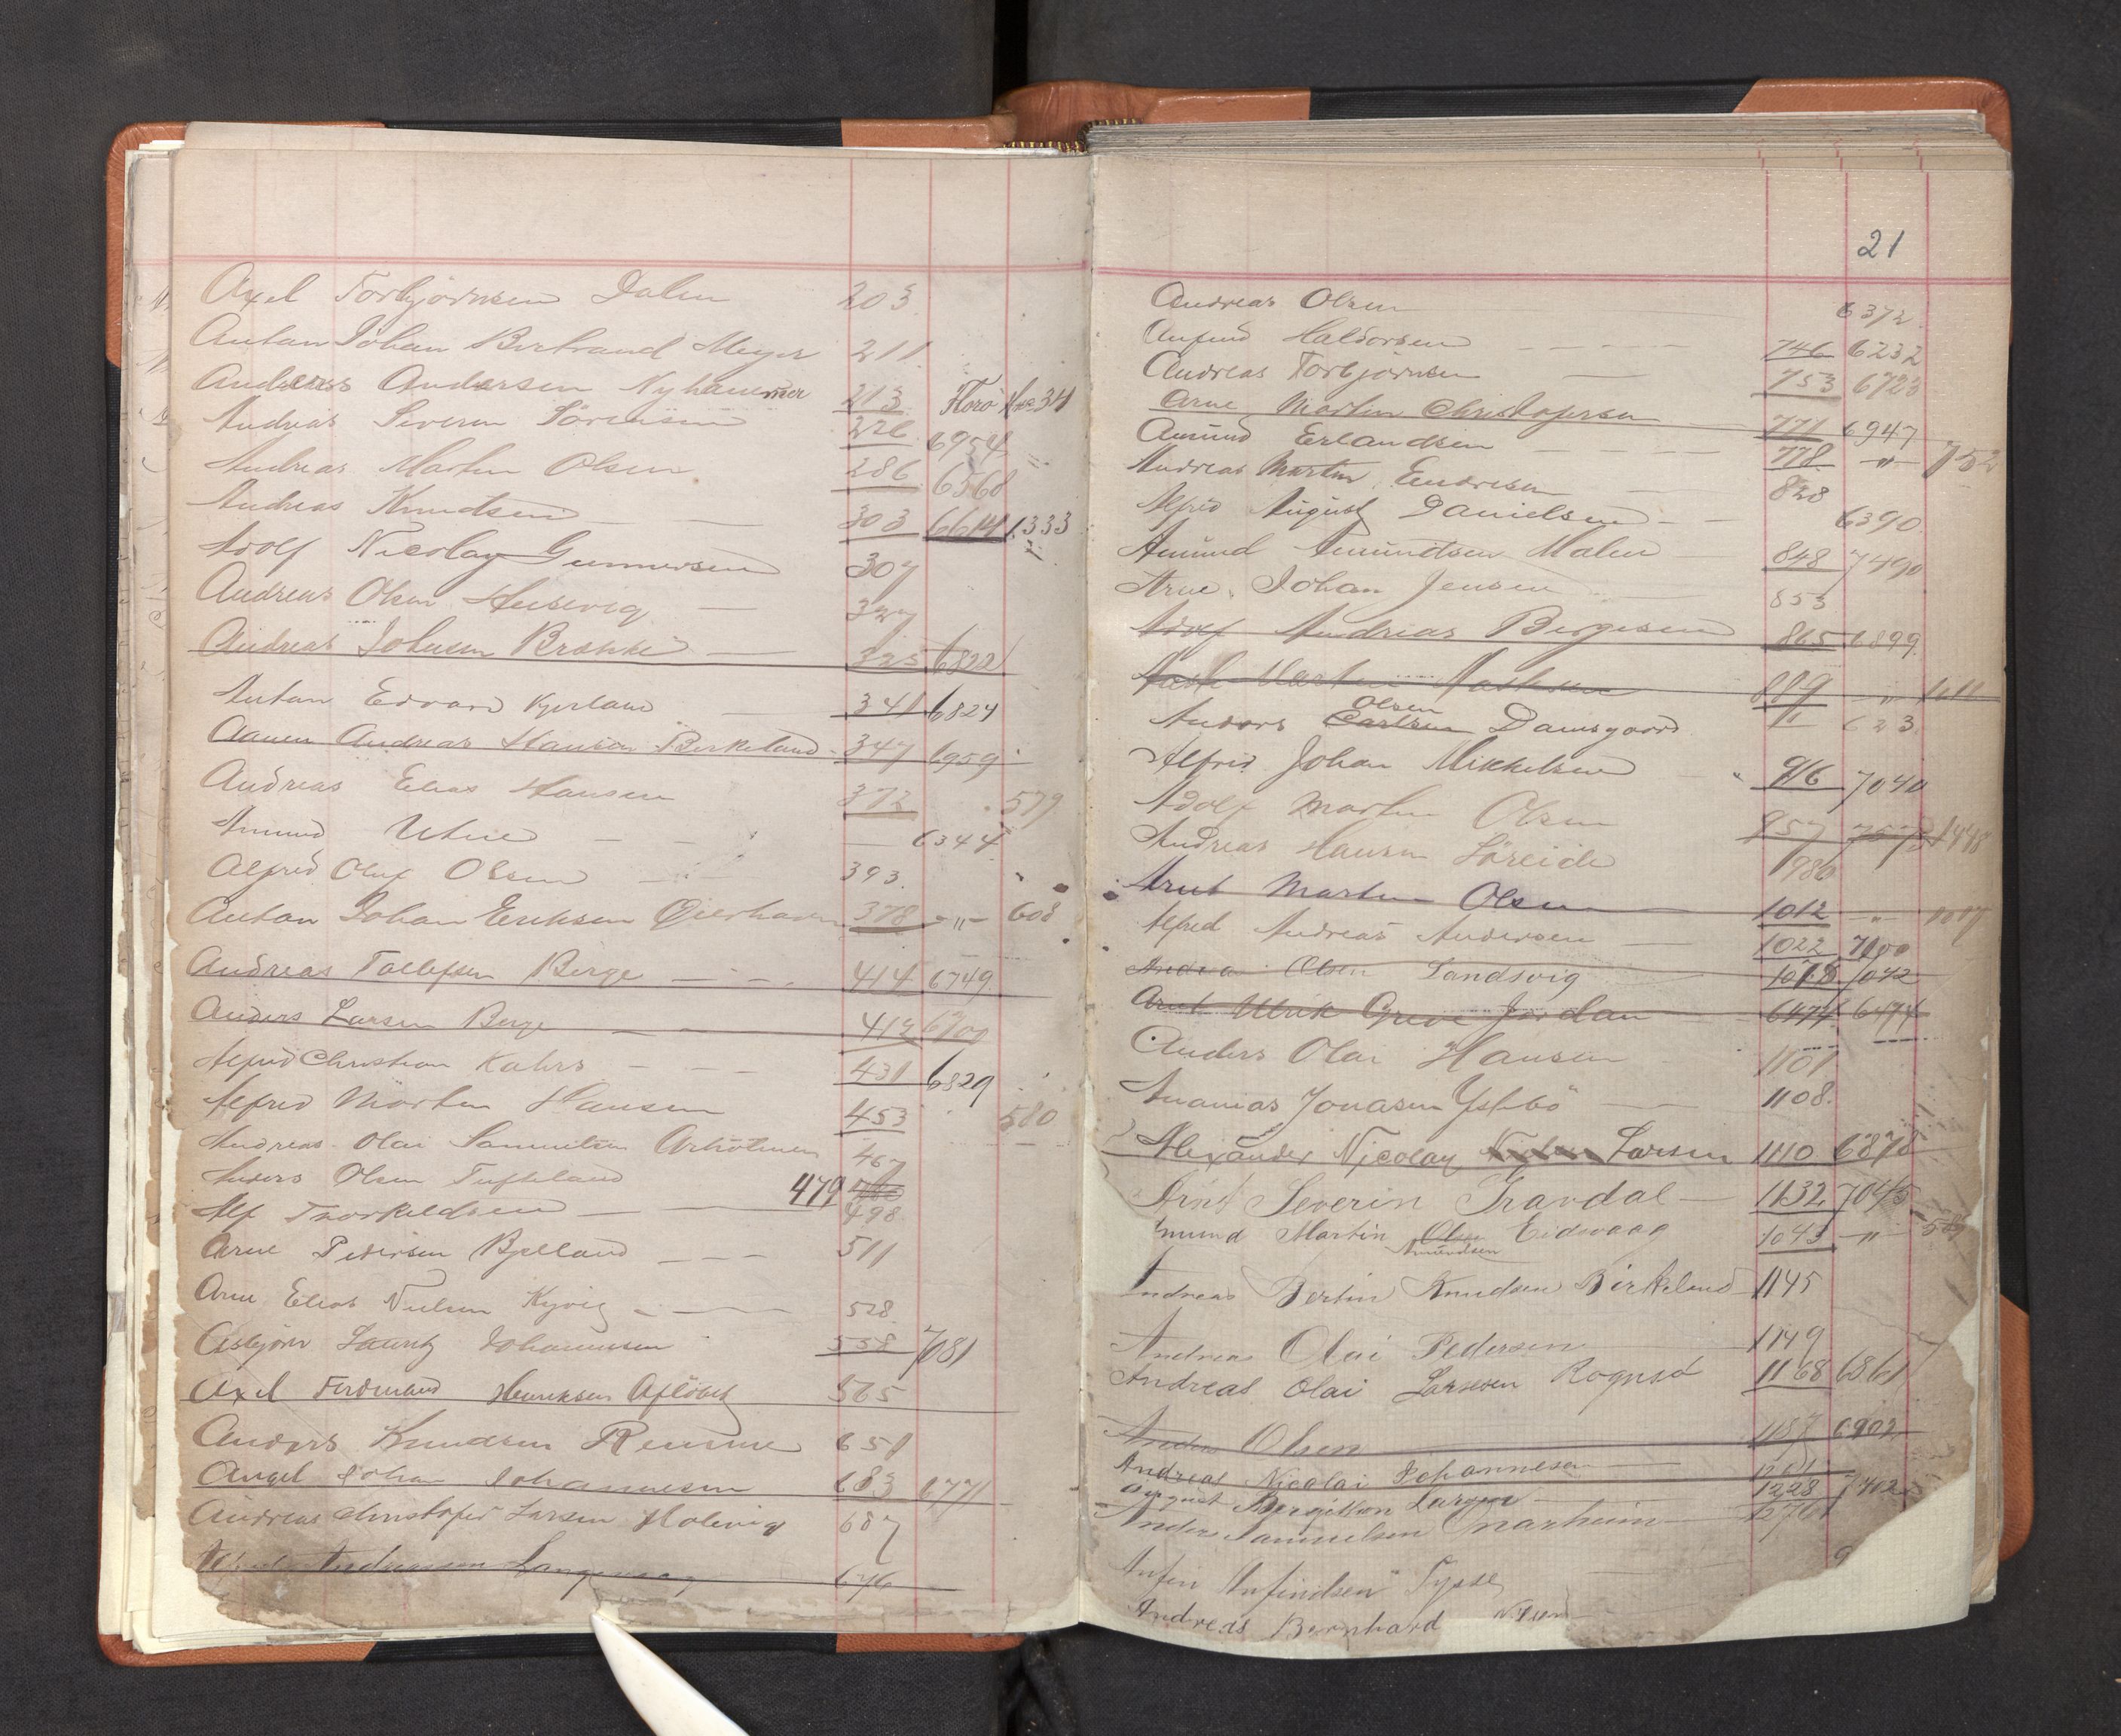 Axel Torbjørnsen Dalen 203
Anton Johan Bertrand Meyer 211
Andreas Andersen Nyhammer 213 Florø 34
Andreas Severin Sørensen 226 6954
Andreas Martin Olsen 286 6568
Andreas Knudsen 303 6614 1333
Adolf Nicolay Gunnersen 307
Andreas Olsen 327
Andreas Johnsen 325 6822
Anton Edvard Kjerland 341 6824
Aanen Andreas Hansen Birkeland 347 6959
Andreas Elias Hansen 372 579
Amund Utne 6344
Alfred Oluf Olsen 393
Anton Johan Eriksen 378 - " - 608
Andreas Tollefsen Berge 414 6749
Anders Larsen Berge 419
Alfred Christian Kahrs 431 6829
Alfred Martin Hansen 453 580
Andreas Olai Samuelsen
Anders Olsen Tufteland 479
Alf Thorkildsen 498
Arne Pedersen Bjelland 511
Arne Elias Nielsen Kyvig 528
Asbjørn Lauritz Johannesen 558 7081
Axel Ferdinand Henriksen 565
Anders Knudsen 651
Angel Johan Johannesen 683 6771
Andreas Christofer Larsen Holevig 687
Andreassen Langevaag 676
21
Andreas Olsen 6372
Anfind Haldorsen 746 6232
Andreas Torbjørnsen 753 6723
Arne Martin Christofersen 771 6947
Amund Erlandsen 778 - " - 752
Andreas Martin Endresen 828
Alfred August Danielsen 6390
Amund Amundsen Malen 848 7490
Arne Johan Jensen 853
Adolf Andreas Birgesen 865 6899
Martin 889 "
Olsen
Anders Carlsen Damsgaard " 623
Alfred Johan Mikkelsen 916 7040
Adolf Martin Olsen 957 1448
Andreas Hansen Søreide 986
Arnt Martin Olsen 1012 - " -
Alfred Andreas Andersen 1022 7100
Andreas Olsen Sandsvig 1018 7042
Arnt Ulrik Greve Jordan 6474 6474
Anders Olai Hansen 1101
Ananias Jonasen 1108
Alexander Nicolay Larsen 1110 6878
Arnt Severin Travdal 1132 7045
mund Martin Olsen Eidsvaag 1043 - " -
Amundsen
Andreas Bertin Knudsen Birkeland 1145
Andreas Olai Pedersen 1149
Andreas Olai Larsen Rognsø 1168 6861
Anders Olsen 1187 6902
Andreas Nicolai Johannesen
August Larsen 1228
Anders Samuelsen 1276
Anfin Anfindsen Tysse
Andreas Bernhard Nilsen